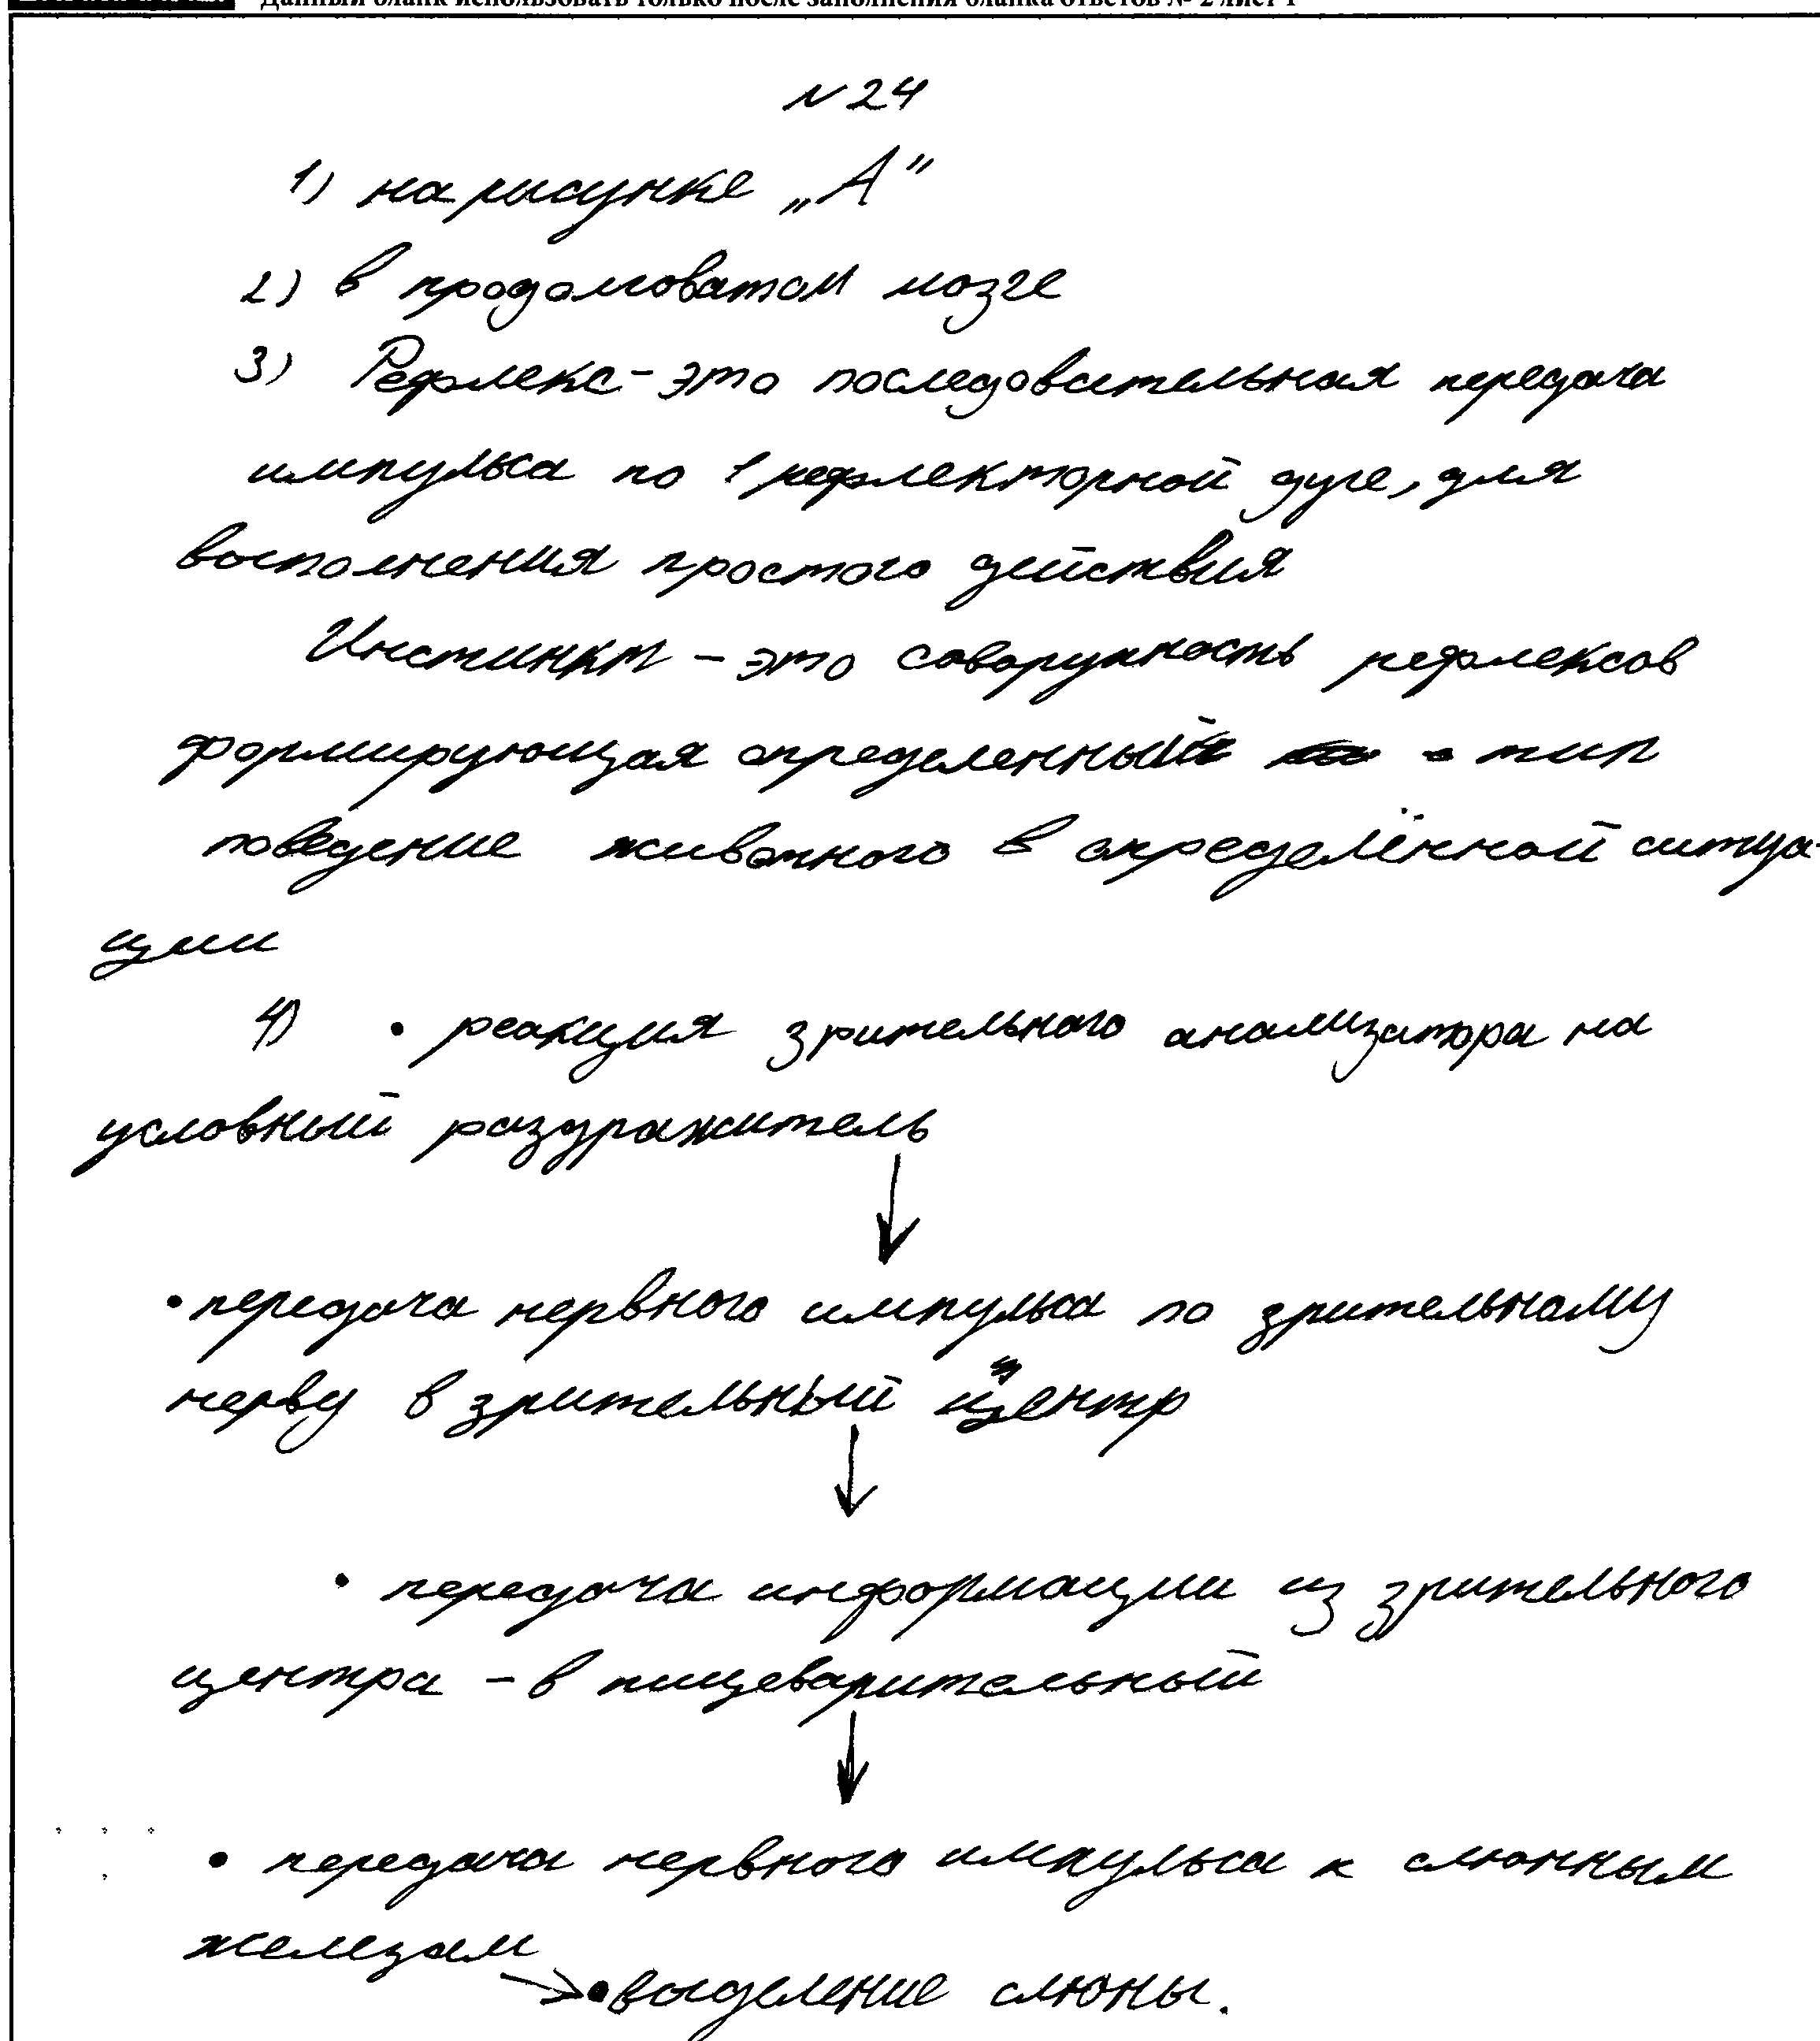 Данный бланк использовать только после заполнения бланка ответов № 2 лист 1
№ 24
1) на рисунке „А"
2) в продолговатом мозге
3) Рефлекс - это последовательная передача
импульса по 1 рефлекторной дуге, для
восполнения простого действия
Инстинкт - это совокупность рефлексов
формирующая определенный тип
поведение животного в определённой ситуа-
ции
4) • реакция зрительного анализатора на
условный раздражитель
↓
• передача нервного импульса по зрительному
нерву в зрительный центр
↓
• передача информации из зрительного
центра - в пищеварительный
↓
• передача нервного импульса к слюнным
железам
→ • выделение слюны.